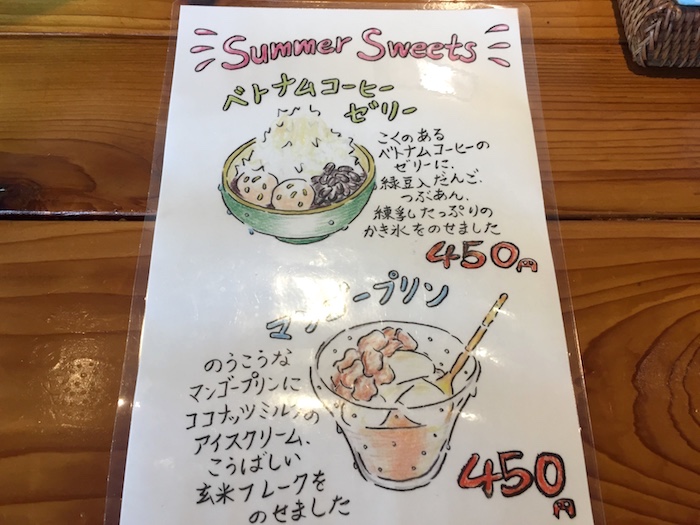 Summer Sweets
ベトナムコーヒー
ゼリー
こくのある
ベトナムコーヒーの
ゼリーに、
緑豆入だんご、
つぶあん、
練乳たっぷりの
かき氷をのせました
450円
マンゴープリン
のうこうな
マンゴープリンに
ココナッツミルクの
アイスクリーム、
こうばしい
玄米フレークを
のせました
450円